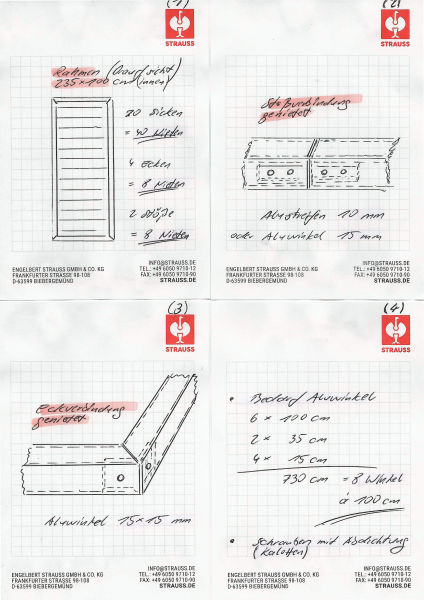 (1)
STRAUSS
Rahmen (Draufsicht)
235 x 100 cm (innen)
20 Sicken
= 40 Nieten
4 Ecken
= 8 Nieten
2 Stöße
= 8 Nieten
ENGELBERT STRAUSS GMBH & CO. KG
FRANKFURTER STRASSE 98-108
D-63599 BIEBERGEMÜND
INFO@STRAUSS.DE
TEL.: +49 6050 9710-12
FAX: +49 6050 9710-90
STRAUSS.DE
(2)
STRAUSS
Stoßverbindung
genietet
Alustreifen 10 mm
oder Aluwinkel 15 mm
ENGELBERT STRAUSS GMBH & CO. KG
FRANKFURTER STRASSE 98-108
D-63599 BIEBERGEMÜND
INFO@STRAUSS.DE
TEL.: +49 6050 9710-12
FAX: +49 6050 9710-90
STRAUSS.DE
(3)
STRAUSS
Eckverbindung
genietet
Aluwinkel 15 x 15 mm
ENGELBERT STRAUSS GMBH & CO. KG
FRANKFURTER STRASSE 98-108
D-63599 BIEBERGEMÜND
INFO@STRAUSS.DE
TEL.: +49 6050 9710-12
FAX: +49 6050 9710-90
STRAUSS.DE
(4)
STRAUSS
• Bedarf Aluwinkel
6 x 100 cm
2 x 35 cm
4 x 15 cm
730 cm = 8 Winkel
á 100 cm
• Schrauben mit Abdichtung
(Kalotten)
ENGELBERT STRAUSS GMBH & CO. KG
FRANKFURTER STRASSE 98-108
D-63599 BIEBERGEMÜND
INFO@STRAUSS.DE
TEL.: +49 6050 9710-12
FAX: +49 6050 9710-90
STRAUSS.DE